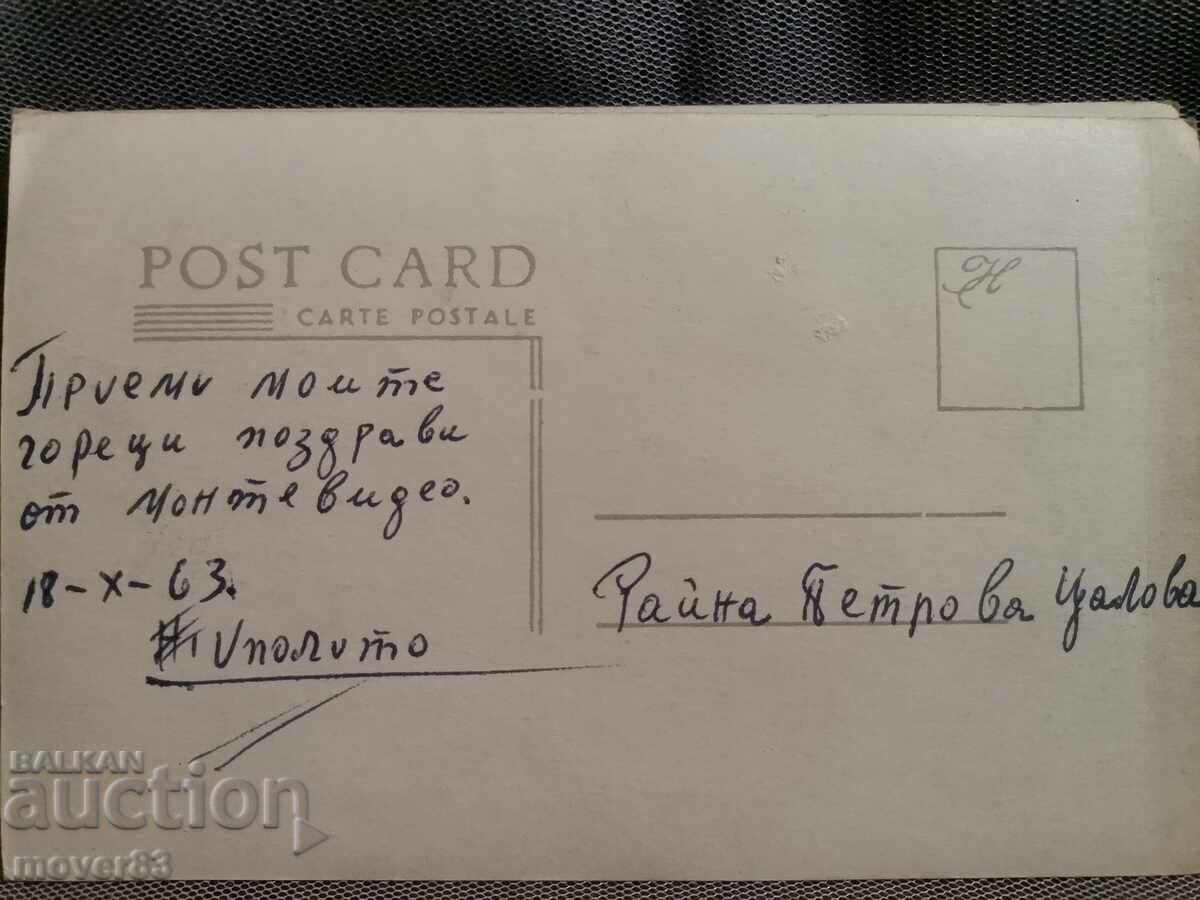 POST CARD
CARTE POSTALE
H
Приеми моите
горещи поздрави
от Монтевидео.
18-X-63.
Иполито
Райна Петрова Цалова
BALKAN
auction
mover83